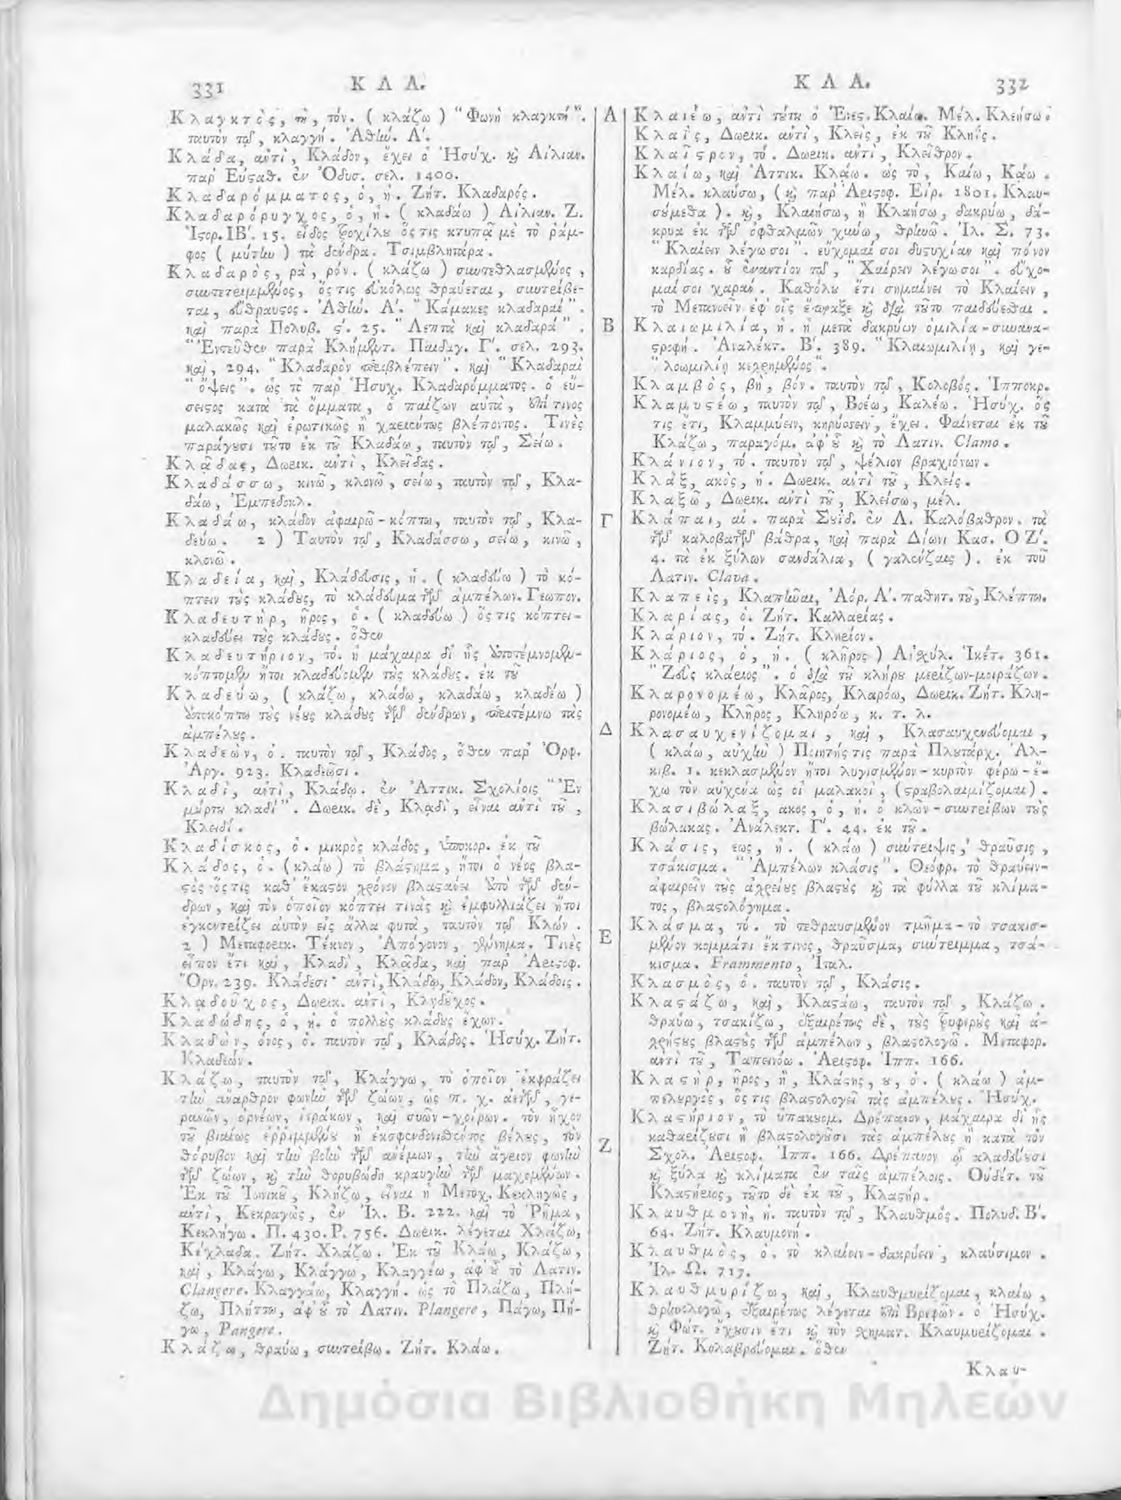 331
Κ Λ Α.
Κλαγκτὸς, ὴ, τόν. ( κλάζω ) "Φωνὴ κλαγκτή".
ταυτὸν τῷ, κλαγγή. Ἀθήν. Α´.
Κλάδα, αντὶ, Κλάδον, ἔχει ὁ Ἡσύχ. καὶ Αἰλιαν.
παρ Εὐσταθ. ἐν Ὀδυσ. σελ. 1400.
Κλαδαρόμματος, ὁ, ἡ. Ζήτ. Κλαδαρός.
Κλαδαρόρυγχος, ὁ, ἡ. ( κλαδάω ) Αἰλιαν. Ζ.
Ἱστορ. ΙΒ´. 15. εἶδος τροχίλου ὅςτις κτυπᾷ μὲ τὸ ράμ-
φος ( μύτην ) τὰ δένδρα. Τσιμβλητάρα.
Κλαδαρὸς, ρὰ, ρόν. ( κλάζω ) συντεθλασμένος,
συντετριμμένος, ὅςτις εὐκόλως θραύεται, συντρίβε-
ται, εὔθραυστος. Ἀθήν. Α´. "Κάμακες κλαδαραὶ".
καὶ παρὰ Πολυβ. ϛ´. 25. "Λεπτὰ καὶ κλαδαρὰ".
Ἐντεῦθεν παρὰ Κλήμεντ. Παιδαγ. Γ´. σελ. 293.
καὶ, 294. "Κλαδαρὸν περιβλέπειν". καὶ "Κλαδαραὶ
ὄψεις". ὡς τὸ παρ Ἡσυχ. Κλαδαρόμματος. ὁ εὔ-
σειστος κατὰ τὰ ὄμματα, ὁ παίζων αὐτὰ, ἐπί τινος
μαλακῶς καὶ ἐρωτικῶς ἢ χαριέντως βλέποντος. Τινὲς
παράγουσι τοῦτο ἐκ τοῦ Κλαδάω, ταυτὸν τῷ, Σείω.
Κλᾷδας, Δωρικ. αντὶ, Κλεῖδας.
Κλαδάσσω, κινῶ, κλονῶ, σείω, ταυτὸν τῷ, Κλα-
δάω, Ἐμπεδοκλ.
Κλαδάω, κλάδον ἀφαιρῶ-κόπτω, ταυτὸν τῷ, Κλα-
δεύω. 2 ) Ταυτὸν τῷ, Κλαδάσσω, σείω, κινῶ,
κλονῶ.
Κλαδεία, καὶ, Κλάδευσις, ἡ. ( κλαδεύω ) τὸ κό-
πτειν τοὺς κλάδους, τὸ κλάδευμα τῶν ἀμπέλων. Γεωπον.
Κλαδευτὴρ, ῆρος, ὁ. ( κλαδεύω ) ὅςτις κόπτει-
κλαδεύει τοὺς κλάδους. ὅθεν
Κλαδευτήριον, τό. ἡ μάχαιρα δι ἧς ἀποτέμνομεν-
κόπτομεν ἤτοι κλαδεύομεν τοὺς κλάδους. ἐκ τοῦ
Κλαδεύω, ( κλάζω, κλάδω, κλαδάω, κλαδέω )
ἀποκόπτω τοὺς νέους κλάδους τῶν δένδρων, περιτέμνω τὰς
ἀμπέλους.
Κλαδεὼν, ὁ. ταυτὸν τῷ, Κλάδος, ὅθεν παρ Ὀρφ.
Ἀργ. 923. Κλαδεῶσι.
Κλαδὶ, αντὶ, Κλάδῳ. ἐν Ἀττικ. Σχολίοις "Ἐν
μύρτου κλαδὶ". Δωρικ. δὲ, Κλᾳδὶ, εἶναι αντὶ τοῦ,
Κλειδί.
Κλαδίσκος, ὁ. μικρὸς κλάδος, ὑποκορ. ἐκ τοῦ
Κλάδος, ὁ. ( κλάω ) τὸ βλάστημα, ἤτοι ὁ νέος βλα-
στὸς ὅςτις καθ ἕκαστον χρόνον βλαστάνει ἀπὸ τῶν δέν-
δρων, καὶ τὸν ὁποῖον κόπτει τινὰς καὶ ἐμφυλλιάζει ἤτοι
ἐγκεντρίζει αὐτὸν εἰς ἄλλα φυτὰ, ταυτὸν τῷ Κλών.
2 ) Μεταφορικ. Τέκνον, Ἀπόγονον, γέννημα. Τινὲς
εἶπον ἔτι καὶ, Κλαδὶ, Κλάδα, καὶ παρ Ἀριστοφ.
Ὄρν. 239. Κλάδεσι αντὶ, Κλάδῳ, Κλάδον, Κλάδοις.
Κλᾳδοῦχος, Δωρικ. αντὶ, Κληδοῦχος.
Κλαδώδης, ὁ, ἡ. ὁ πολλοὺς κλάδους ἔχων.
Κλαδὼν, όνος, ὁ. ταυτὸν τῷ, Κλάδος. Ἡσύχ. Ζήτ.
Κλαδεών.
Κλάζω, ταυτὸν τῷ, Κλάγγω, τὸ ὁποῖον ἐκφράζει
τὴν ἄναρθρον φωνὴν τῶν ζώων, ὡς π. χ. ἀετῶν, γε-
ράνων, ὀρνέων, ἱεράκων, καὶ συῶν-χοίρων. τὸν ἦχον
τοῦ βιαίως ἐρριμμένου ἢ ἐκσφενδονισθέντος βέλους, τὸν
θόρυβον καὶ τὴν βοὴν τῶν ἀνέμων, τὴν ἄγριον φωνὴν
τῶν ζώων, καὶ τὴν θορυβώδη κραυγὴν τῶν μαχομένων.
Ἐκ τοῦ Ἰωνικοῦ, Κλήζω, εἶναι ἡ Μετοχ. Κεκληγὼς,
αντὶ, Κεκραγὼς, ἐν Ἰλ. Β. 222. καὶ τὸ Ῥῆμα,
Κεκλήγω. Π. 430. Ρ. 756. Δωρικ. λέγεται Χλάζω,
Κέχλαδα. Ζήτ. Χλάζω. Ἐκ τοῦ Κλάω, Κλάζω,
καὶ, Κλάγω, Κλάγγω, Κλαγγέω, ἀφ οὗ τὸ Λατιν.
Clangere. Κλαγγάω, Κλαγγή. ὡς τὸ Πλάζω, Πλή-
ζω, Πλήττω, ἀφ οὗ τὸ Λατιν. Plangere, Πάγω, Πή-
γω, Pangere.
Κλάζω, θραύω, συντρίβω. Ζήτ. Κλάω.
Α
Β
Γ
Δ
Ε
Ζ
Κ Λ Α.
332
Κλαιέω, αντὶ τούτου ὁ Ἐνες. Κλαίω. Μέλ. Κλαιήσω.
Κλαῒς, Δωρικ. αντὶ, Κλεὶς, ἐκ τοῦ Κληΐς.
Κλαῖστρον, τό. Δωρικ. αντὶ, Κλεῖθρον.
Κλαίω, καὶ Ἀττικ. Κλάω. ὡς τὸ, Καίω, Κάω.
Μέλ. κλαύσω, ( καὶ παρ Ἀριστοφ. Εἰρ. 1801. Κλαυ-
σούμεθα ). καὶ, Κλαιήσω, ἢ Κλαήσω, δακρύω, δά-
κρυα ἐκ τῶν ὀφθαλμῶν χύνω, θρηνῶ. Ἰλ. Σ. 73.
"Κλαίειν λέγω σοι". εὔχομαί σοι δυστυχίαν καὶ πόνον
καρδίας. οὗ ἐναντίον τῷ, "Χαίρειν λέγω σοι". εὔχο-
μαί σοι χαράν. Καθόλου ἔτι σημαίνει τὸ Κλαίειν,
τὸ Μετανοεῖν ἐφ οἷς ἔπραξε καὶ διὰ τοῦτο παιδεύεσθαι.
Κλαιωμιλία, ἡ. ἡ μετὰ δακρύων ὁμιλία-συνανα-
στροφή. Ἀναλέκτ. Β´. 389. "Κλαιωμιλίη, καὶ γε-
λοωμιλίη κερχημένος".
Κλαμβὸς, βὴ, βόν. ταυτὸν τῷ, Κολοβός. Ἱπποκρ.
Κλαμυστέω, ταυτὸν τῷ, Βοέω, Καλέω. Ἡσύχ. ὅς
τις ἔτι, Κλαμμύειν, κηρύσσειν, ἔχει. Φαίνεται ἐκ τοῦ
Κλάζω, παραγόμ. ἀφ οὗ καὶ τὸ Λατιν. Clamo.
Κλάνιον, τό. ταυτὸν τῷ, ψέλιον βραχιόνων.
Κλὰξ, ακὸς, ἡ. Δωρικ. αντὶ τοῦ, Κλείς.
Κλαξῶ, Δωρικ. αντὶ τοῦ, Κλείσω, μέλ.
Κλάπαι, αἱ. παρὰ Σουίδ. ἐν Λ. Καλόβαθρον. τὰ
τῶν καλοβατῶν βάθρα, καὶ παρὰ Δίωνι Κασ. ΟΖ´.
4. τὰ ἐκ ξύλων σανδάλια, ( γαλέντζαις ). ἐκ τοῦ
Λατιν. Clava.
Κλαπεὶς, Κλαπῆναι, Ἀόρ. Α´. παθητ. τοῦ, Κλέπτω.
Κλαρίας, ὁ. Ζήτ. Καλλαείας.
Κλάριον, τό. Ζήτ. Κληρίον.
Κλάριος, ὁ, ἡ. ( κλῆρος ) Αἰσχύλ. Ἱκέτ. 361.
"Ζεὺς κλάριος". ὁ διὰ τοῦ κλήρου μερίζων-μοιράζων.
Κλαρονομέω, Κλᾶρος, Κλαρόω, Δωρικ. Ζήτ. Κλη-
ρονομέω, Κλῆρος, Κληρόω, κ. τ. λ.
Κλασαυχενίζομαι, καὶ, Κλασαυχενεύομαι,
( κλάω, αὐχὴν ) Ποιητής τις παρὰ Πλουτάρχ. Ἀλ-
κιβ. 1. κεκλασμένον ἤτοι λυγισμένον-κυρτὸν φέρω-ἔ-
χω τὸν αὐχένα ὡς οἱ μαλακοὶ, ( στραβολαιμίζομαι ).
Κλασιβώλαξ, ακος, ὁ, ἡ. ὁ κλῶν-συντρίβων τοὺς
βώλακας. Ἀνάλεκτ. Γ´. 44. ἐκ τοῦ.
Κλάσις, εως, ἡ. ( κλάω ) σύντριψις, θραῦσις,
τσάκισμα. "Ἀμπέλων κλάσις". Θεόφρ. τὸ θραύειν-
ἀφαιρεῖν τοὺς ἀχρείους βλαστοὺς καὶ τὰ φύλλα τοῦ κλίμα-
τος, βλαστολόγημα.
Κλάσμα, τό. τὸ τεθραυσμένον τμῆμα-τὸ τσακισ-
μένον κομμάτι ἔκ τινος, θραῦσμα, σύντριμμα, τσά-
κισμα. Frammento, Ἰταλ.
Κλασμὸς, ὁ. ταυτὸν τῷ, Κλάσις.
Κλαστάζω, καὶ, Κλαστάω, ταυτὸν τῷ, Κλάζω.
θραύω, τσακίζω, ἐξαιρέτως δὲ, τοὺς τρυφεροὺς καὶ ἀ-
χρήστους βλαστοὺς τῶν ἀμπέλων, βλαστολογῶ. Μεταφορ.
αντὶ τοῦ, Ταπεινόω. Ἀριστοφ. Ἱππ. 166.
Κλαστὴρ, ῆρος, ἢ, Κλάστης, ου, ὁ. ( κλάω ) ἀμ-
πελουργὸς, ὅςτις βλαστολογεῖ τὰς ἀμπέλους. Ἡσύχ.
Κλαστήριον, τὸ ὑπακουομ. Δρέπανον, μάχαιρα δι ἧς
καθαρίζουσι ἢ βλαστολογοῦσι τὰς ἀμπέλους ἢ κατὰ τὸν
Σχολ. Ἀριστοφ. Ἱππ. 166. Δρέπανον ᾧ κλαδεύουσι
καὶ ξύλα καὶ κλίματα ἐν ταῖς ἀμπέλοις. Οὐδέτ. τοῦ
Κλαστήριος, τοῦτο δὲ ἐκ τοῦ, Κλαστήρ.
Κλαυθμονὴ, ἡ. ταυτὸν τῷ, Κλαυθμός. Πολυδ. Β´.
64. Ζήτ. Κλαυμονή.
Κλαυθμὸς, ὁ. τὸ κλαίειν-δακρύειν, κλαύσιμον.
Ἰλ. Ω. 717.
Κλαυθμυρίζω, καὶ, Κλαυθμυρίζομαι, κλαίω,
θρηνολογῶ, ἐξαιρέτως λέγεται ἐπὶ Βρεφῶν. ὁ Ἡσύχ.
καὶ Φώτ. ἔχουσιν ἔτι καὶ τὸν σχηματ. Κλαυμυρίζομαι.
Ζήτ. Κολαβρεύομαι. ὅθεν
Κλαυ-
Δημόσια Βιβλιοθήκη Μηλεών